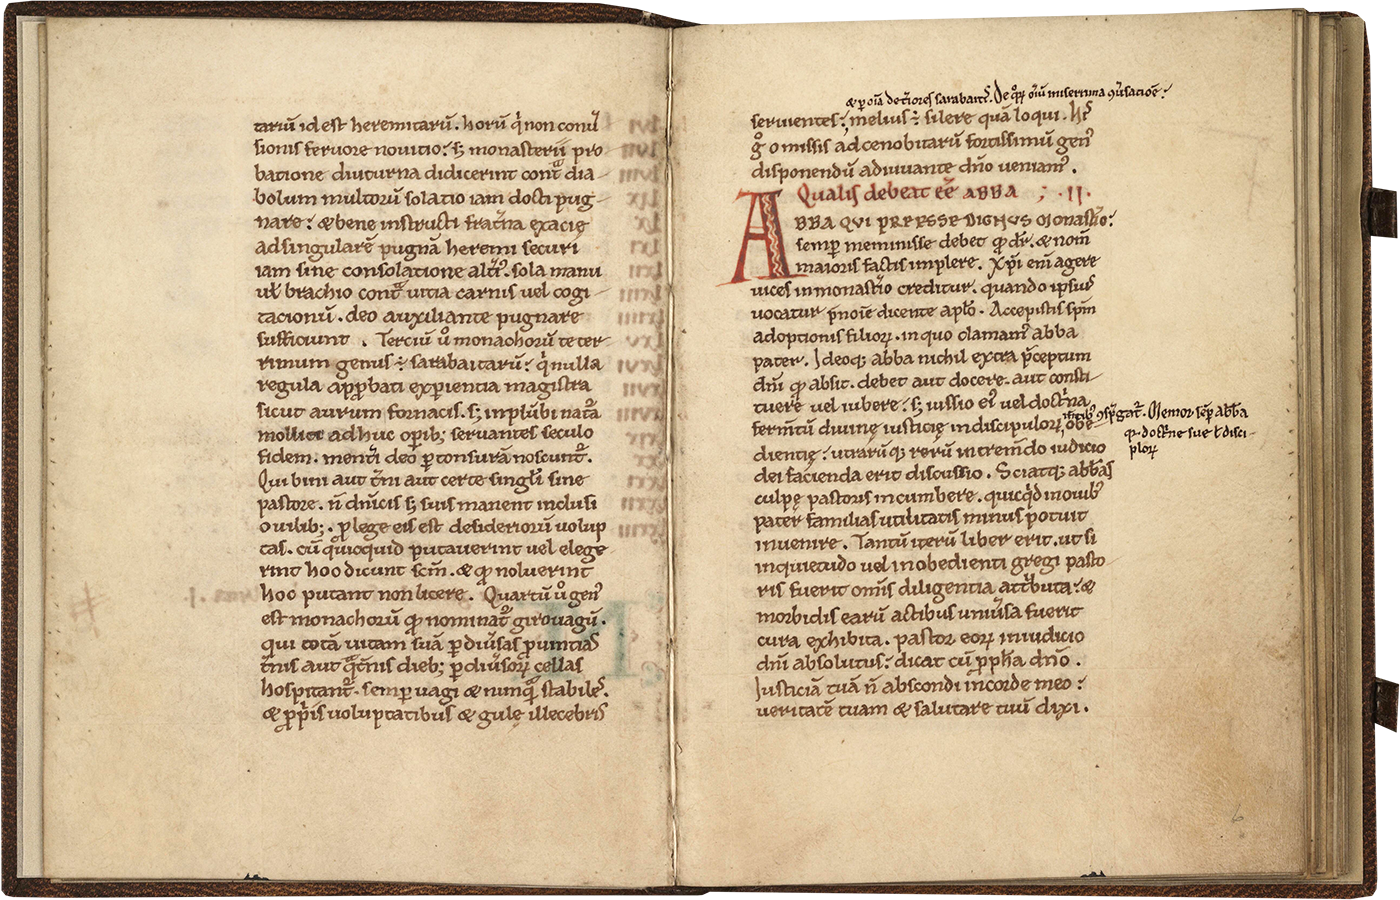 tariū id est heremitarū. horū q̇ non con̄uͥ
sionis feruore nouitio: s; monasterii pro
batione diuturna didicerint cont̄ dia
bolum multorū solatio iam docti pug
nare: & bene instructi frat̄na ex acie
ad singularē pugnā heremi securi
iam sine consolatione alt̄i᷒. sola manu
ul̄ brachio cont̄ uitia carnis uel cogi
tacionū. deo auxiliante pugnare
sufficiunt. Terciū u̇ monachorū teter
rimum genus ÷ sarabaitarū: q̇ nulla
regula app̱bati exp̱ientia magistra
sicut aurum fornacis. s; in plūbi nat̄a
molliti adhuc op̱ib; seruantes seculo
fidem. mentiri deo p̱ tonsurā noscunt̄.
Qui bini aut t̄ni aut certe singl̄i sine
pastore. n̄ dn̄icis s; suis manent inclusi
ouilib;. p̱ lege eis est desideriorū volup
tas. cū q̇cquid putauerint uel elege
rint hoc dicunt scm̄. & qđ noluerint
hoc putant non licere. Quartū u̇ gen᷒
est monachorū qđ nominat̄ girouagū.
qui totā uitam suā p̱ diu̇sas p̱uintias
t̄nis aut q̇t̄nis dieb; p̱ diu̇soꝝ cellas
hospitant̄. semper uagi & nunq̄ stabiles.
& p̱p̱is uoluptatibus & gule illecebris
& p̱ oīa det̄iores sarabaitis. De q̇ꝝ oīu miserrima ꝯu̇satioē:
seruientes: melius ÷ silere quā loqui. his
g̊ omissis ad cenobitarū fortissimū gen᷒
disponendū adiuuante dn̄o ueniam᷒.
Qualis debeat eē ABBA ; .II.
ABBA QVI PREESSE DIGNUS Monast̄io:
semp̱ meminisse debet qđ dr̄. & nom̄
maioris factis implere. Xp̄i eni̅ agere
uices in monast̄io creditur. quando ipsi᷒
uocatur p̄noīe dicente aplō. Accepistis spm̄
adoptionis filioꝝ. in quo clamam᷒ abba
pater. Ideoq; abba nichil extra p̄ceptum
dn̄i qđ absit. debet aut docere. aut consti
tuere uel iubere: s; iussio ei᷒ uel doct̄na
ferm̄tū diuinę iusticię in discipuloꝝ
m̄tib᷒ ꝯsp̱gat̄. Memor semp̱ abba
qđ doct̄ne sue ł disci-
ploꝝ
obe
dientię: utrarūq; rerū in trem̄do iudicio
dei facienda erit discussio. Sciatq; abbas
culpę pastoris incumbere. quicq̇d in ouib᷒
pater familias utilitatis minus potuit
inuenire. Tantū iterū liber erit. ut si
inquietudo uel inobedienti gregi pasto
ris fuerit om̄is diligentia att̄buta: &
morbidis earū actibus uniu̇sa fuerit
cura exhibita. pastor eoꝝ in iudicio
dn̄i absolutus: dicat cū p̱ph̄a dn̄o.
Iusticiā tuā n̄ abscondi in corde meo:
ueritatē tuam & salutare tuū dixi.
6